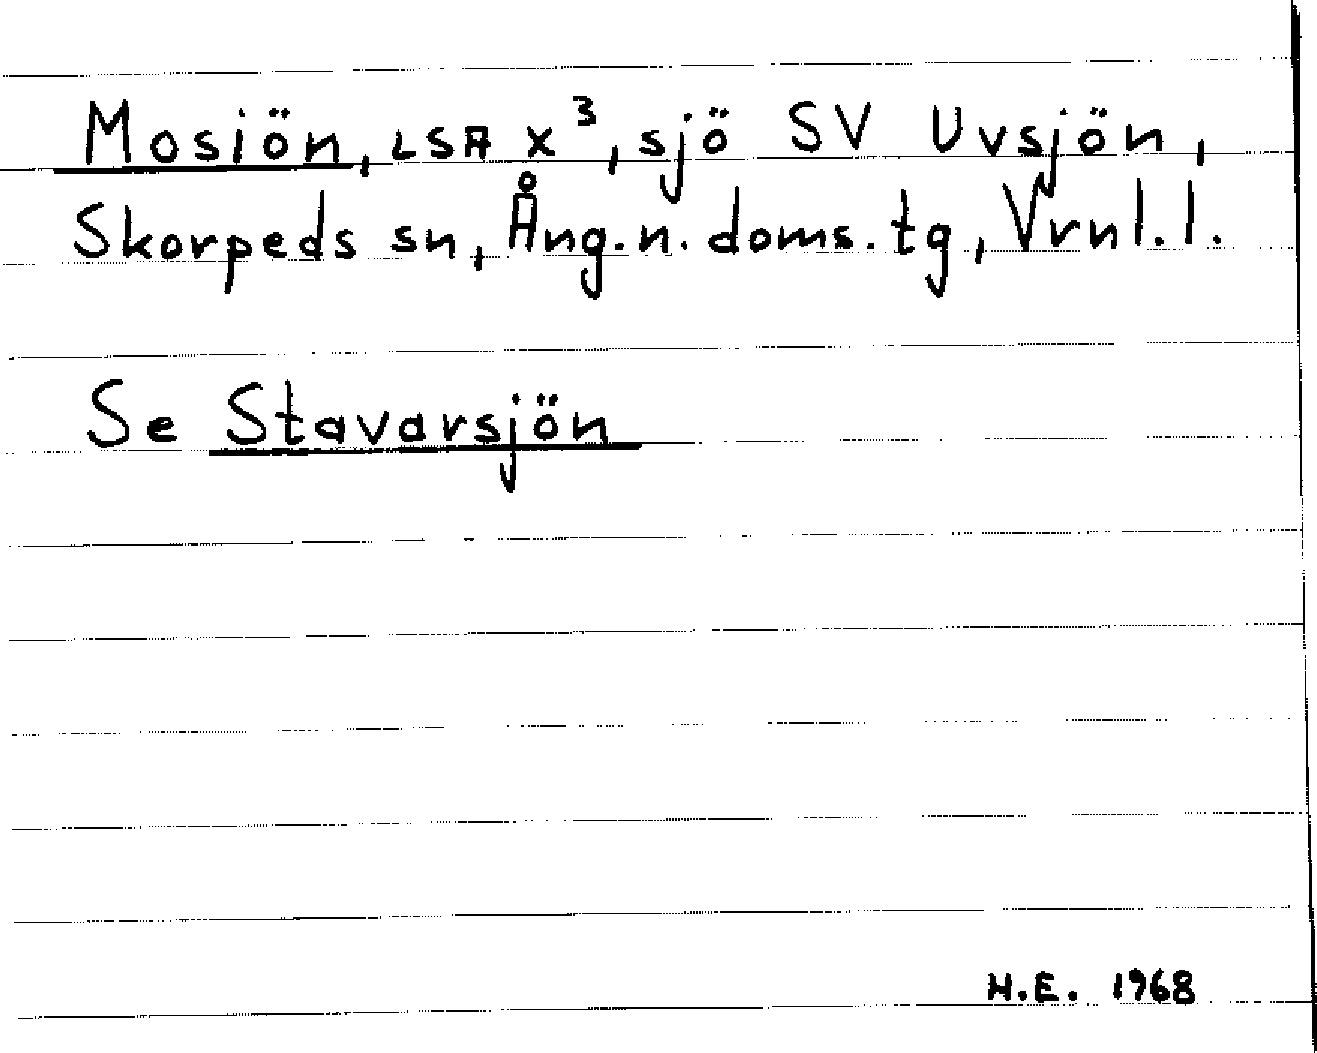 Mosiön, LSA X³, sjö SV Uvsjön,
Skorpeds sn, Ång.n. doms. tg, Vrnl.l.
Se Stavarsjön
H.E. 1968